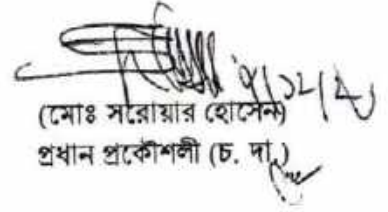 (মোঃ সরোয়ার হোসেন)
প্রধান প্রকৌশলী (চ. দা.)